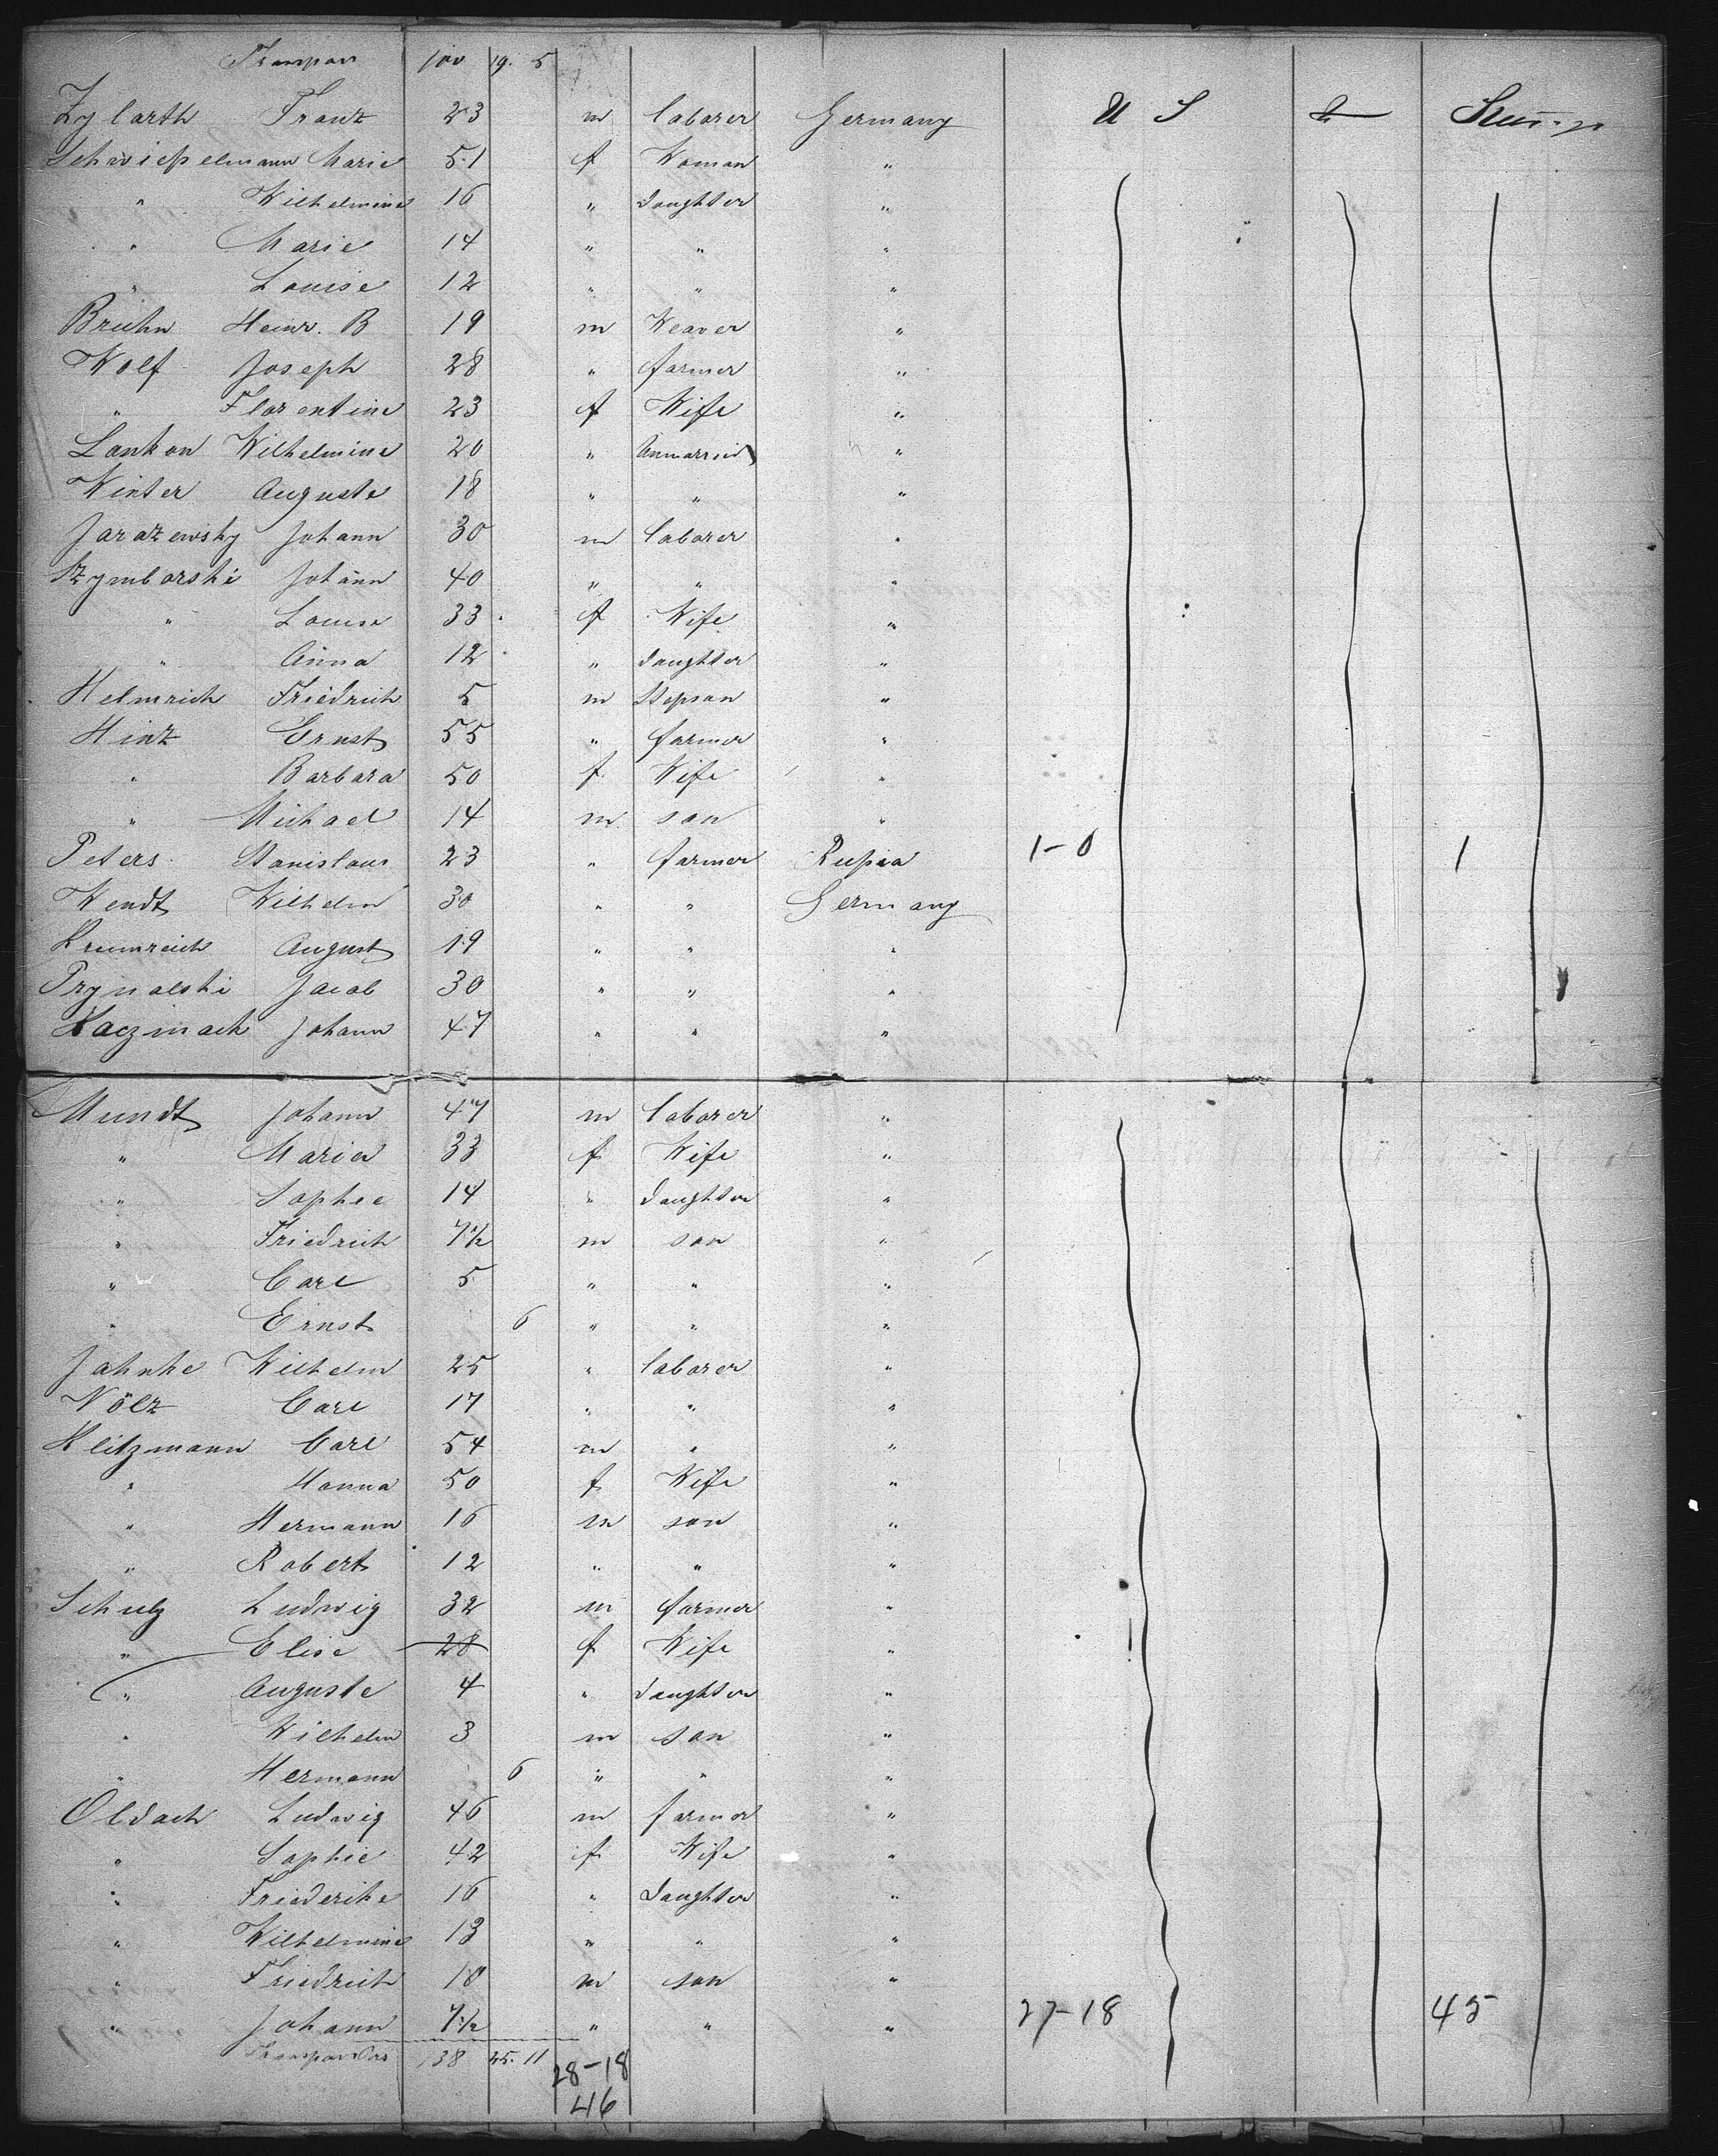 Transpor 100 19. 5
Zylarth Franz 23 m laborer Germany U S Steu
Schwiepelmann Marie 51 f Woman "
" Wilhelmine 16 " daughter "
" Marie 14 " " "
" Louise 12 " " "
Bruhn Heinr. B 19 m Weaver "
Wolf Joseph 28 " farmer "
" Florentine 23 f Wife "
Lankon Wilhelmine 20 " Unmarried "
Winter Auguste 18 " " "
Jarazewsky Johann 30 m laborer "
Szymborski Johann 40 " " "
" Louise 33 f Wife "
" Anna 12 " daughter "
Helmrich Friedrich 5 m Stepson "
Hinz Ernst 55 " farmer "
" Barbara 50 f Wife "
" Michael 14 m son "
Peters Stanislaus 23 " farmer Rußia 1-0 1
Wendt Wilhelm 30 " " Germany
Krumreich August 19 " " "
Prynalski Jacob 30 " " "
Kaczmack Johann 47 " " "
Mundt Johann 47 m laborer "
" Maria 33 f Wife "
" Sophie 14 " daughter "
" Friedrich 7½ m son "
" Carl 5 " " "
" Ernst 6 " " "
Jahnke Wilhelm 25 " laborer "
Nölz Carl 17 " " "
Klitzmann Carl 54 m " "
" Hanna 50 f Wife "
" Hermann 16 m son "
" Robert 12 " " "
Schulz Ludwig 32 m farmer "
" Elise 28 f Wife "
" Auguste 4 " daughter "
" Wilhelm 3 m son "
" Hermann 6 " " "
Oldach Ludwig 46 m farmer "
" Sophie 42 f Wife "
" Friederike 16 " daughter "
" Wilhelmine 13 " " "
" Friedrich 10 m son "
" Johann 7½ " " " 27-18 45
138 25. 11 28-18
46